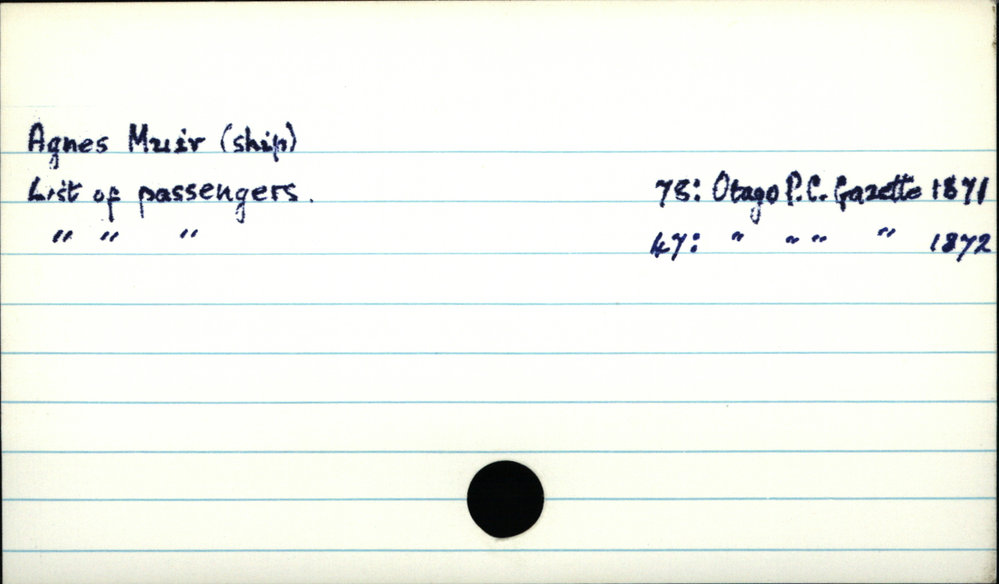 Agnes Muir (ship)
List of passengers. 78: Otago P.C. Gazette 1871
" " " 47: " " " " 1872